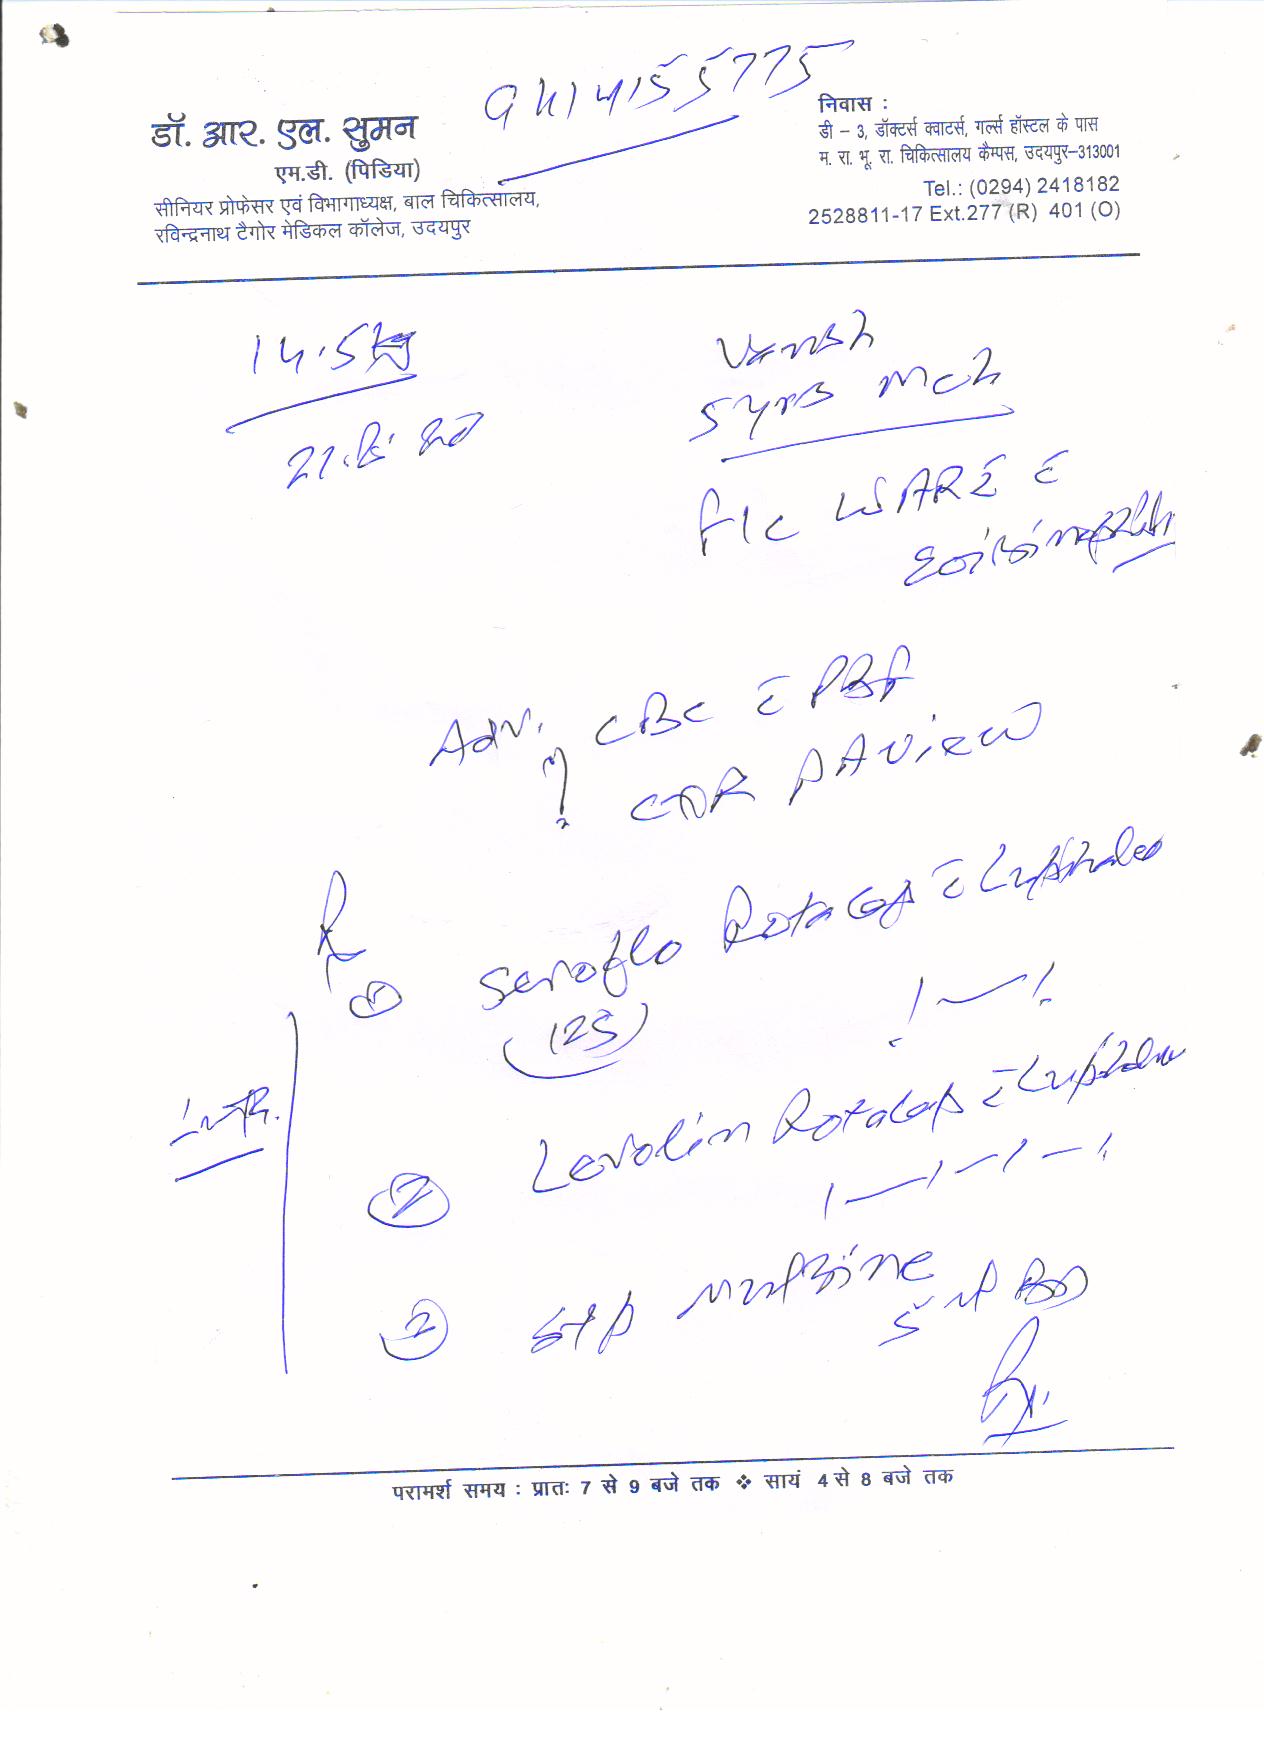 9414155775
डॉ. आर. एल. सुमन
एम.डी. (पिडिया)
सीनियर प्रोफेसर एवं विभागाध्यक्ष, बाल चिकित्सालय,
रविन्द्रनाथ टैगोर मेडिकल कॉलेज, उदयपुर
निवास :
डी – 3, डॉक्टर्स क्वाटर्स, गर्ल्स हॉस्टल के पास
म. रा. भू. रा. चिकित्सालय कैम्पस, उदयपुर–313001
Tel.: (0294) 2418182
2528811-17 Ext.277 (R) 401 (O)
14.5 kg
Vansh
5 yrs mch
F/c WARI c
Adv. CBC c PBF
CXR PA view
Rx
① Seroflo Rotacap c Luphaler
(125)
1 — 1
② Levolin Rotacap c Luphaler
1 — 1 — 1 — 1
Syp
5 ml BD
परामर्श समय : प्रातः 7 से 9 बजे तक ❖ सायं 4 से 8 बजे तक